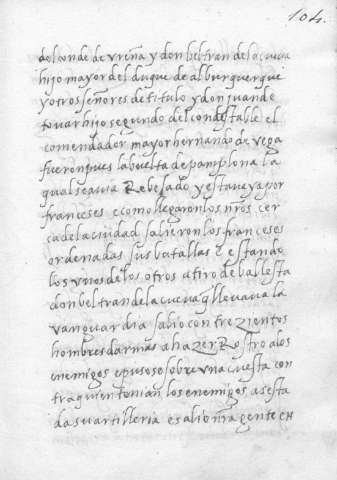 104.
del conde de vreña y don beltran de la cueva
hijo mayor del duque de alburquerque
y otros señores de titulo y don juan de
tovar hijo segundo del condestable el
comendador mayor hernando de vega
fueron pues la buelta de pamplona la
qual se avia Rebelado y estava ya por
franceses e como llegaron los nros cer
ca de la ciudad salieron los franceses
ordenadas sus batallas E estando
los vnos de los otros a tiro de ballesta
don beltran de la cueva q llevava la
vanguardia salio con trezientos
hombres darmas a hazer Rostro a los
enemigos e pusose sobre vna cuesta con
tra quien tenian los enemigos asesta
da su artilleria e salio nra gente en